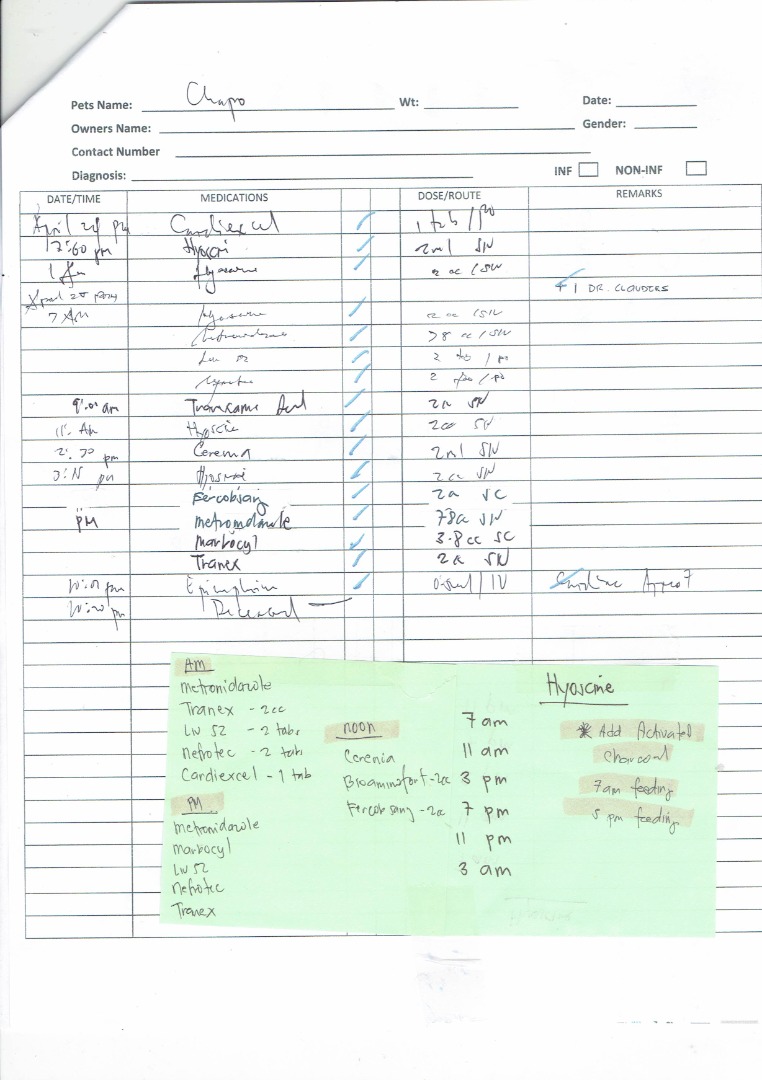 Pets Name: Chapo Wt: Date:
Owners Name: Gender:
Contact Number
Diagnosis: INF NON-INF
DATE/TIME MEDICATIONS DOSE/ROUTE REMARKS
April 24 PM Cardiexcel 1 tab / po
2ml SIV
1 Am Hyoscine 2 cc / SIV
+ 1 DR. CLOUDERS
7 AM Hyoscine 2 cc / SIV
Metronidazole 78 cc / SIV
Liv 52 2 tab / po
2 / po
9:00 am Tranexamic Acid 2cc SIV
11: AM Hyoscine 2cc SIV
2:30 pm Cerenia 2ml SIV
3:15 pm Hyoscine 2cc SIV
Fercobsang 2cc SC
PM Metronidazole 78cc SIV
Marbocyl 3.8 cc SC
Tranex 2cc SIV
Epinephrine / IV
Deceased
AM
Metronidazole
Tranex - 2cc
Liv 52 - 2 tabs
Nefrotec - 2 tab
Cardiexcel - 1 tab
PM
Metronidazole
Marbocyl
Liv 52
Nefrotec
Tranex
noon
Cerenia
Bioaminofort - 2cc
Fercobsang - 2cc
7 am
11 am
3 pm
7 pm
11 pm
3 am
Hyoscine
* Add Activated
Charcoal
7am feeding
5 pm feeding